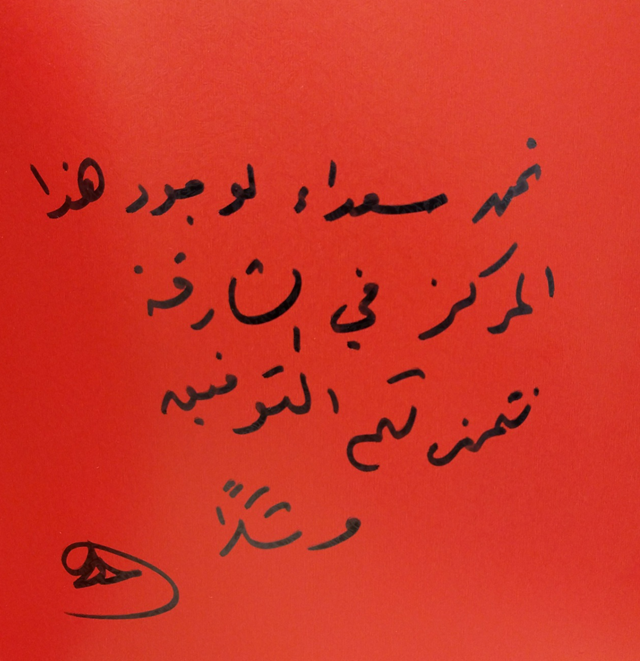 نحن سعداء لوجود هذا
المركز في الشارقة
نتمنى لكم التوفيق
وشكراً